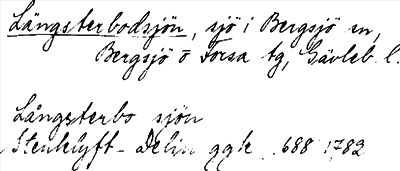 Långsterbodsjön, sjö i Bergsjö sn,
Bergsjö o Forsa tg, Gävleb. l.
Långsterbo sjön
Stenklyft- Delin ggk 688 1782